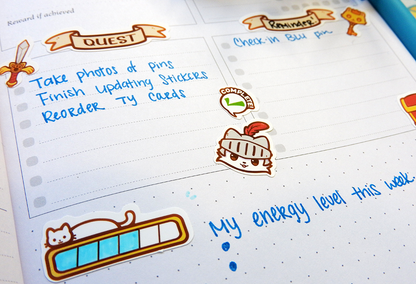 Reward if achieved
QUEST
Take photos of pins
Finish Updating Stickers
Reorder Ty Cards
Reminder
Check in Blu pin
COMPLETE
My energy level this week.